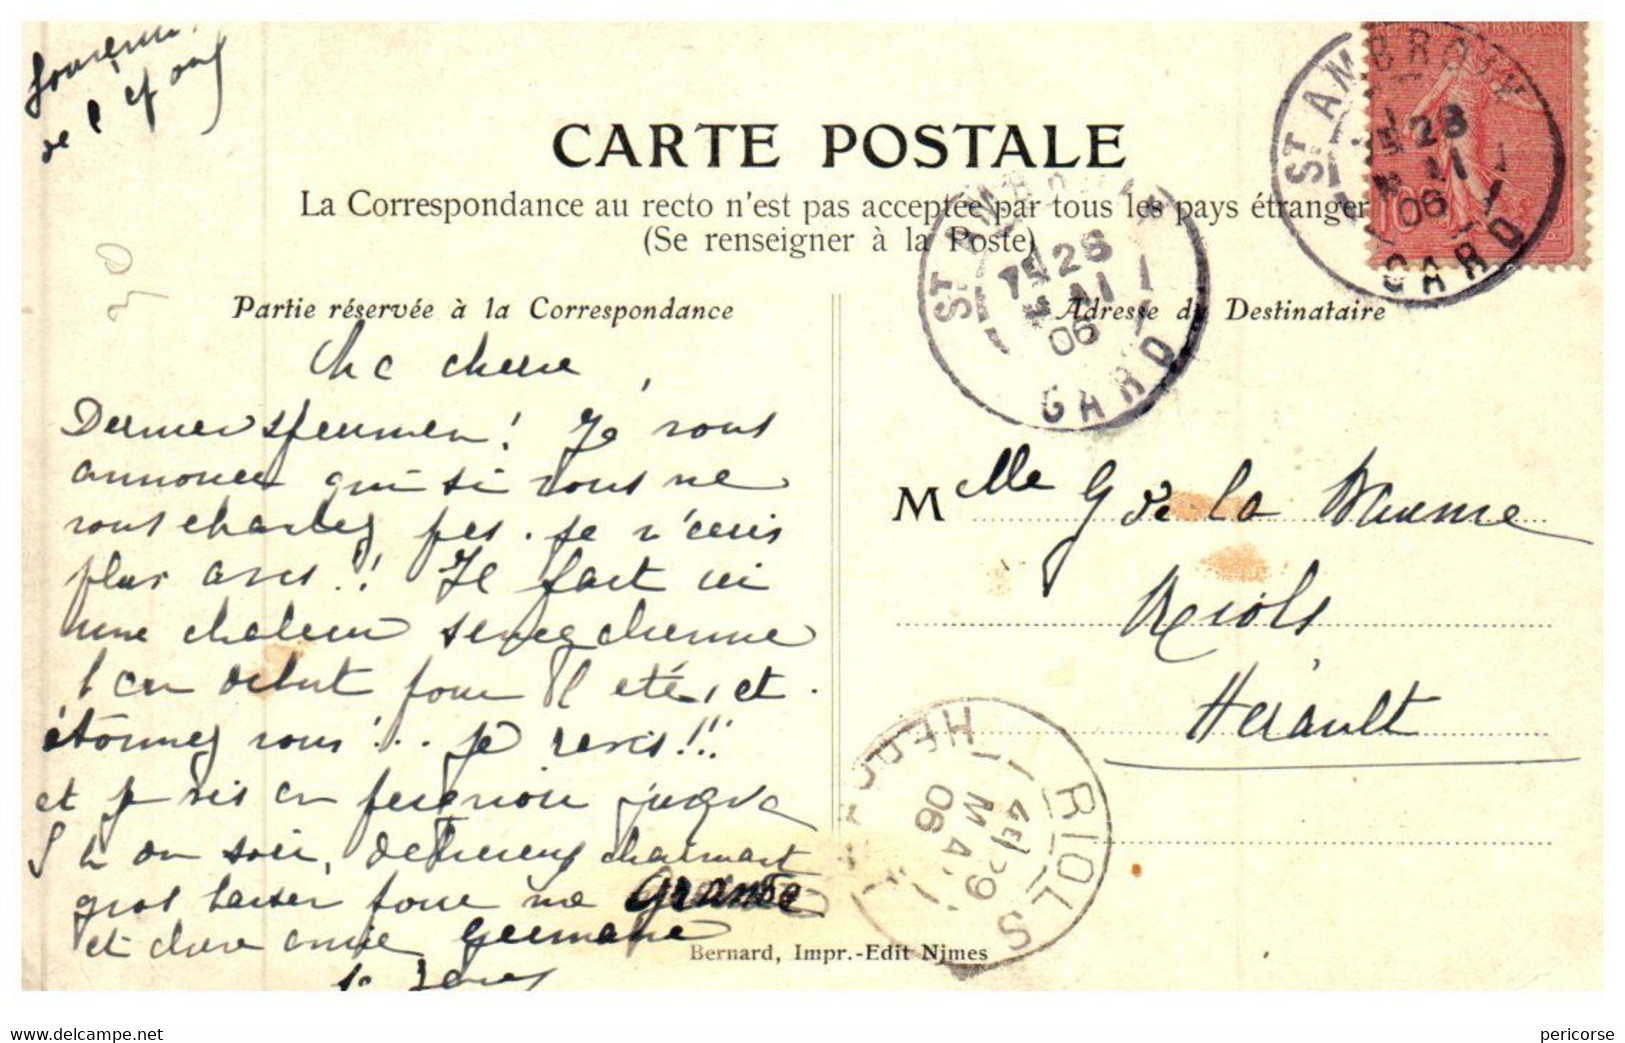 Souvenir
de l'
CARTE POSTALE
La Correspondance au recto n'est pas acceptée par tous les pays étranger
(Se renseigner à la Poste)
Partie réservée à la Correspondance
Adresse du Destinataire
REPUBLIQUE FRANÇAISE
10
ST AMBROIX
28
MAI
06
GARD
ST AMBROIX
7E 28
MAI
06
GARD
Ma chere
Dernier specimen! Je vous
annonce que si vous ne
vous chargez pas. je n'ecris
plus avec!! Il fait ici
une chaleur senegalienne
l' en debut pour l'été, et
étonnez vous!... je revis!!!
et je vis en jusqu'a
5 h du soir, charmant
gros baiser pour ma grande
et chere amie Germaine
Melle G de la
Riols
Herault
RIOLS
HERAULT
4E 29
MAI
06
Bernard, Impr.-Edit Nimes
www.delcampe.net
pericorse